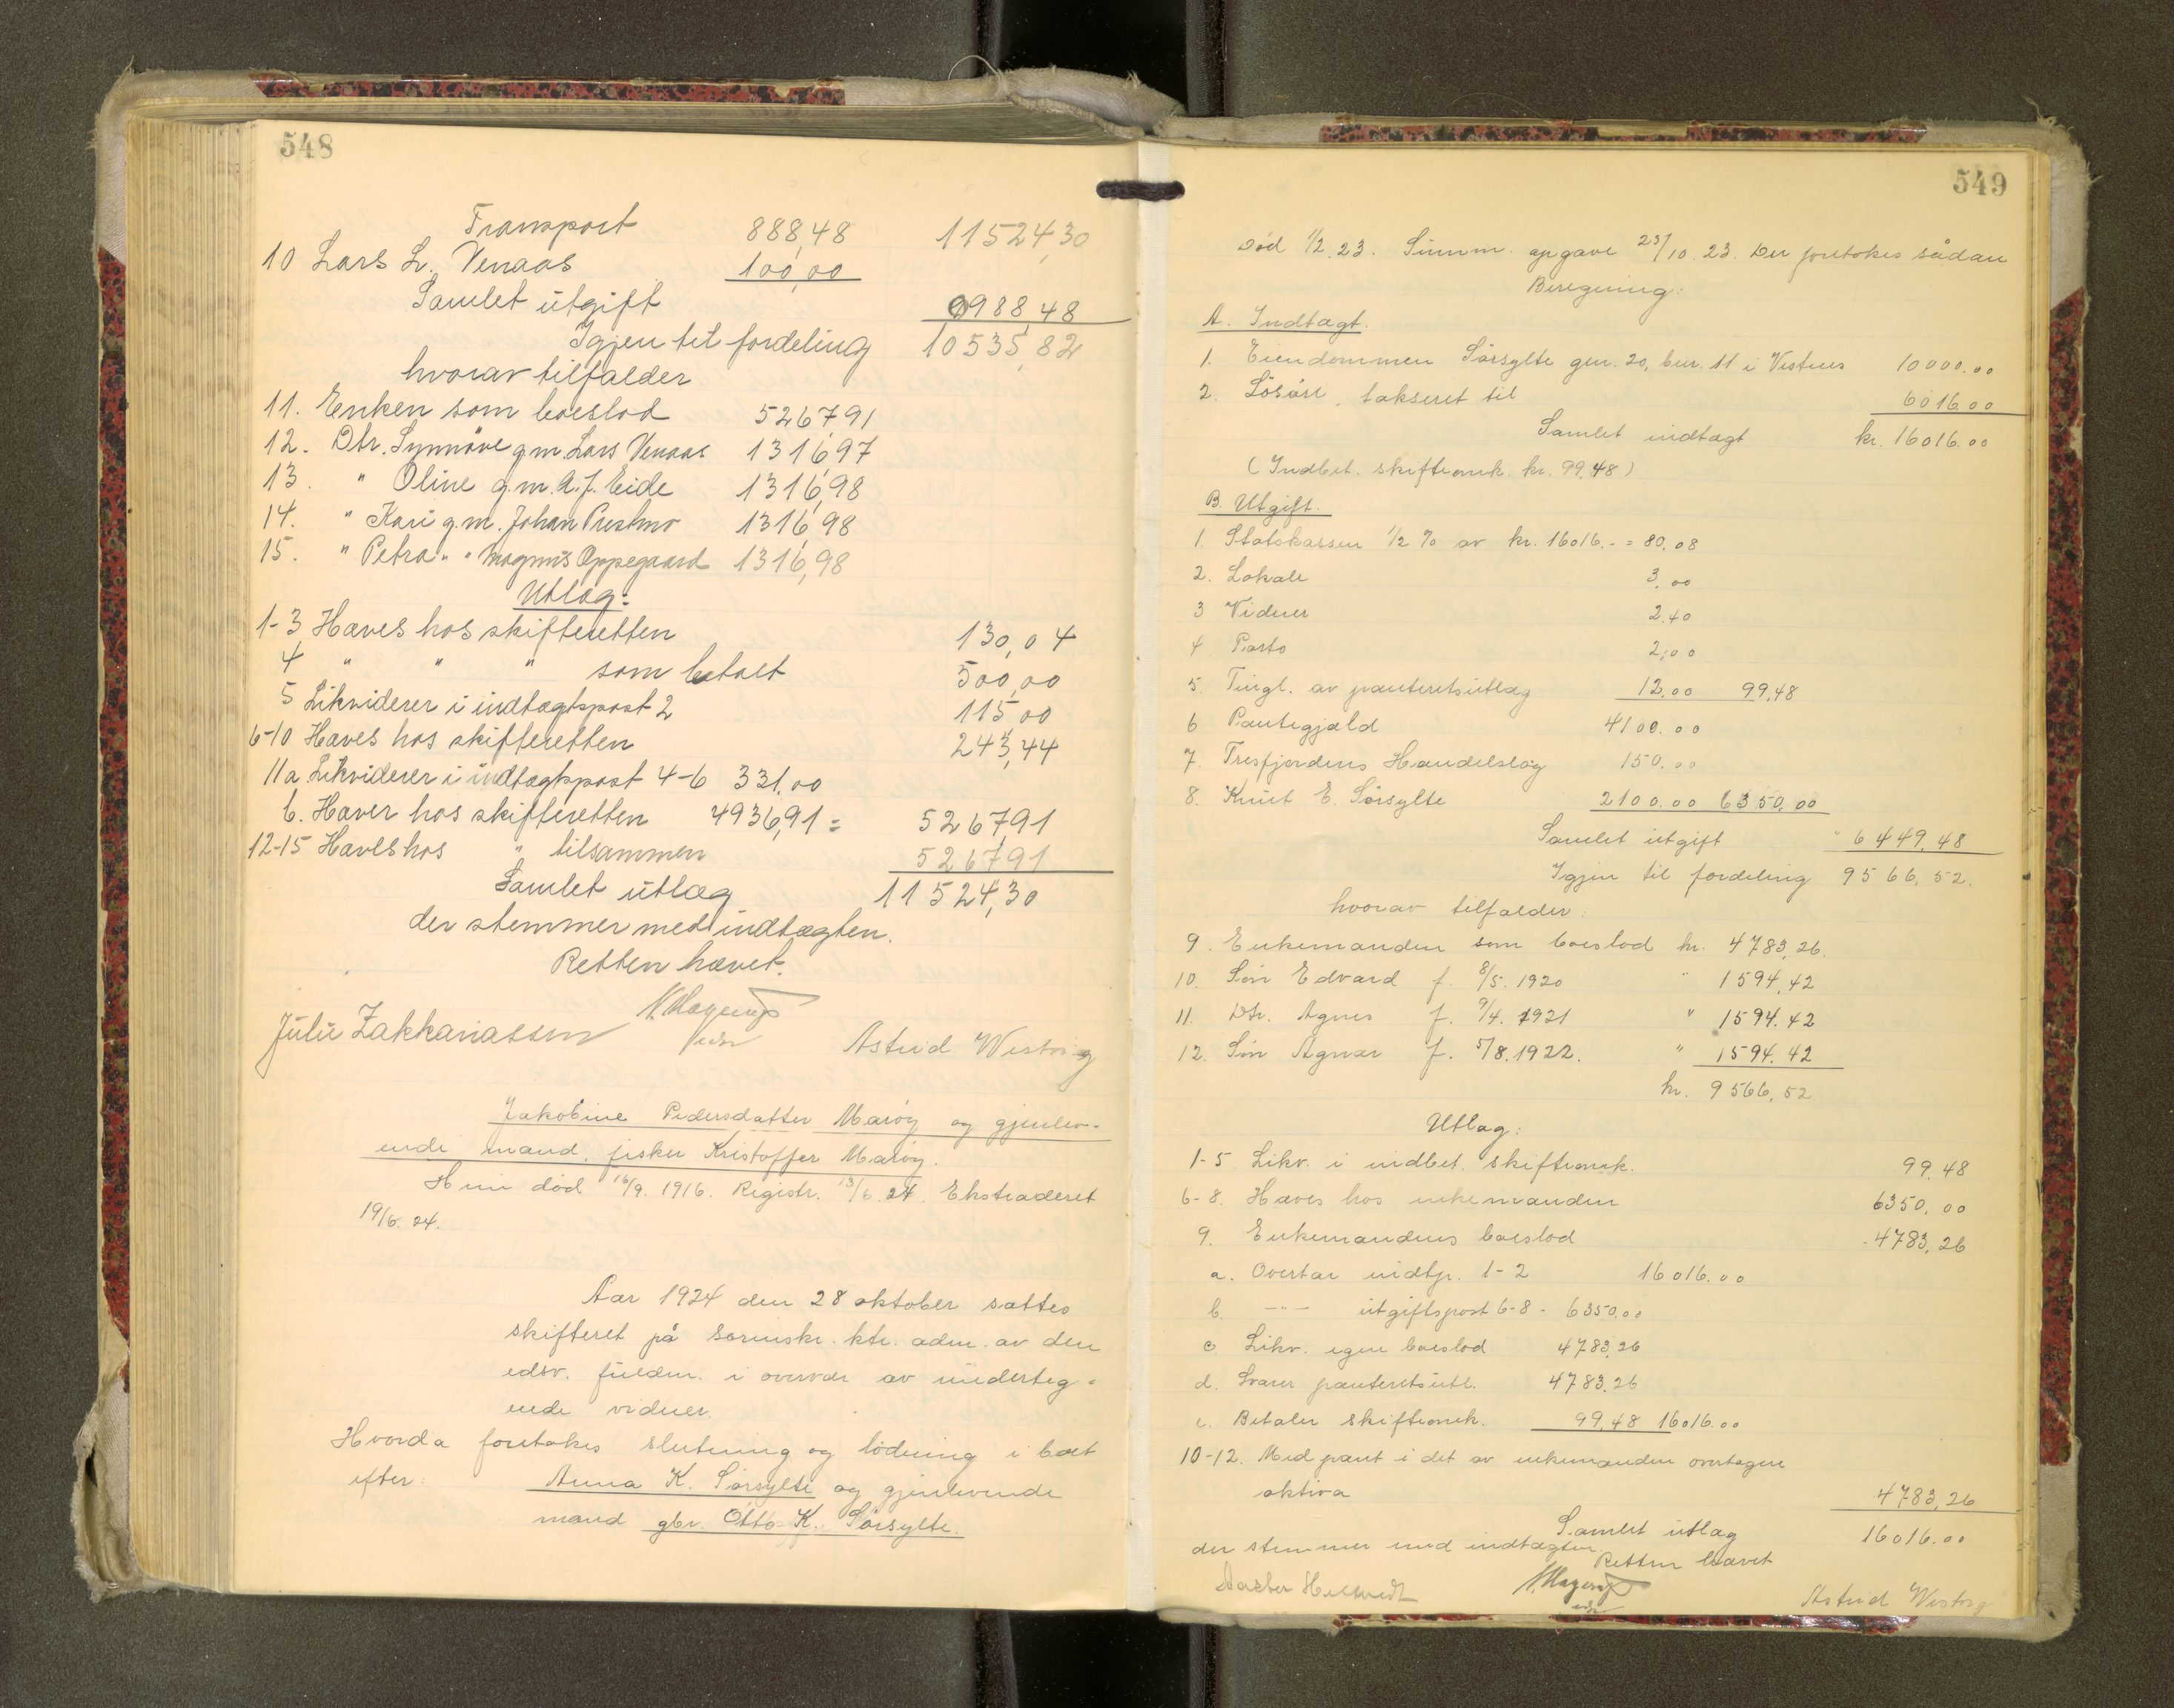 548
Transport 888,48 11524,30
10 Lars L. Venaas 100,00
Samlet utgift 988,48
Igjen til fordeling 10535,82
hvorav tilfalder
11. Enken som boeslod 5267,91
12. Dtr. Synnöve g.m. Lars Venaas 1316,97
13. " Oline g.m. A.J. Eide 1316,98
14. " Kari g.m. Johan Prestmo 1316,98
15. " Petra " " Magnus Oppegaard 1316,98
Utlæg:
1-3 Haves hos skifteretten 130,04
4 " " " som betalt 500,00
5 Likviderer i indtægtspost 2 115,00
6-10 Haves hos skifteretten 243,44
11a Likviderer i indtægtspost 4-6 331,00
b. Haver hos skifteretten 4936,91 = 5267,91
12-15 Haves hos " tilsammen 5267,91
Samlet utlæg 11524,30
der stemmer med indtægten.
Retten hævet.
Julie Zakkariassen N Hagerup Astrid Westvig
edsv
Jakobine Pedersdatter Marøy og gjenlev-
ende mand, fisker Kristoffer Marøy.
Hun død 16/9. 1916. Registr. 13/6. 24. Ekstraderet
19/6. 24.
Aar 1924 den 28 oktober sattes
skifteret på sorenskr. ktr. adm. av den
edsv. fuldm. i overvær av underteg-
ende vidner.
Hvorda foretokes slutning og lodning i boet
efter: Anna K. Sørsylte og gjenlevende
mand gbr. Otto K. Sørsylte.
549
Død 1/2 23. Summ. opgave 23/10. 23. Der foretokes sådan
Beregning:
A. Indtægt.
1. Eiendommen Sörsylte gnr. 20, bnr. 11 i Vestnes 10000.00
2. Lösöre, takseret til 6016.00
Samlet indtægt kr. 16016.00
(Indbet. skifteomk. kr. 99,48)
B. Utgift.
1. Statskassen 1/2 % av kr. 16016.- = 80,08
2. Lokale 3,00
3 Vidner 2.40
4 Porto 2,00
5. Tingl. av panteretsutlæg 12.00 99,48
6 Pantegjæld 4100.00
7. Tresfjordens Handelslag 150.00
8. Knut E. Sörsylte 2100.00 6350,00
Samlet utgift " 6449,48
Igjen til fordeling 9566,52.
hvorav tilfalder:
9. Enkemanden som boeslod kr. 4783,26.
10. Sön Edvard f. 8/5. 1920 " 1594,42
11. Dtr. Agnes f. 9/4. 1921 " 1594.42
12. Sön Agnar f. 5/8. 1922. " 1594.42
kr. 9566,52
Utlæg:
1-5 Likv. i indbet. skifteomk. 99,48
6-8. Haves hos enkemanden 6350,00
9. Enkemandens boeslod 4783,26
a. Overtar indtp. 1-2 16016.00
b. -"- utgiftspost 6-8 - 6350.00
c Likv. egen boeslod 4783,26
d. Svarer panteretsutl. 4783.26
e. Betaler skifteomk. 99,48 16016.00
10-12. Med pant i det av enkemanden overtagne
aktiva 4783,26
Samlet utlæg 16016.00
der stemmer med indtægten.
Retten hævet
N Hagerup Astrid Westvig
edsv